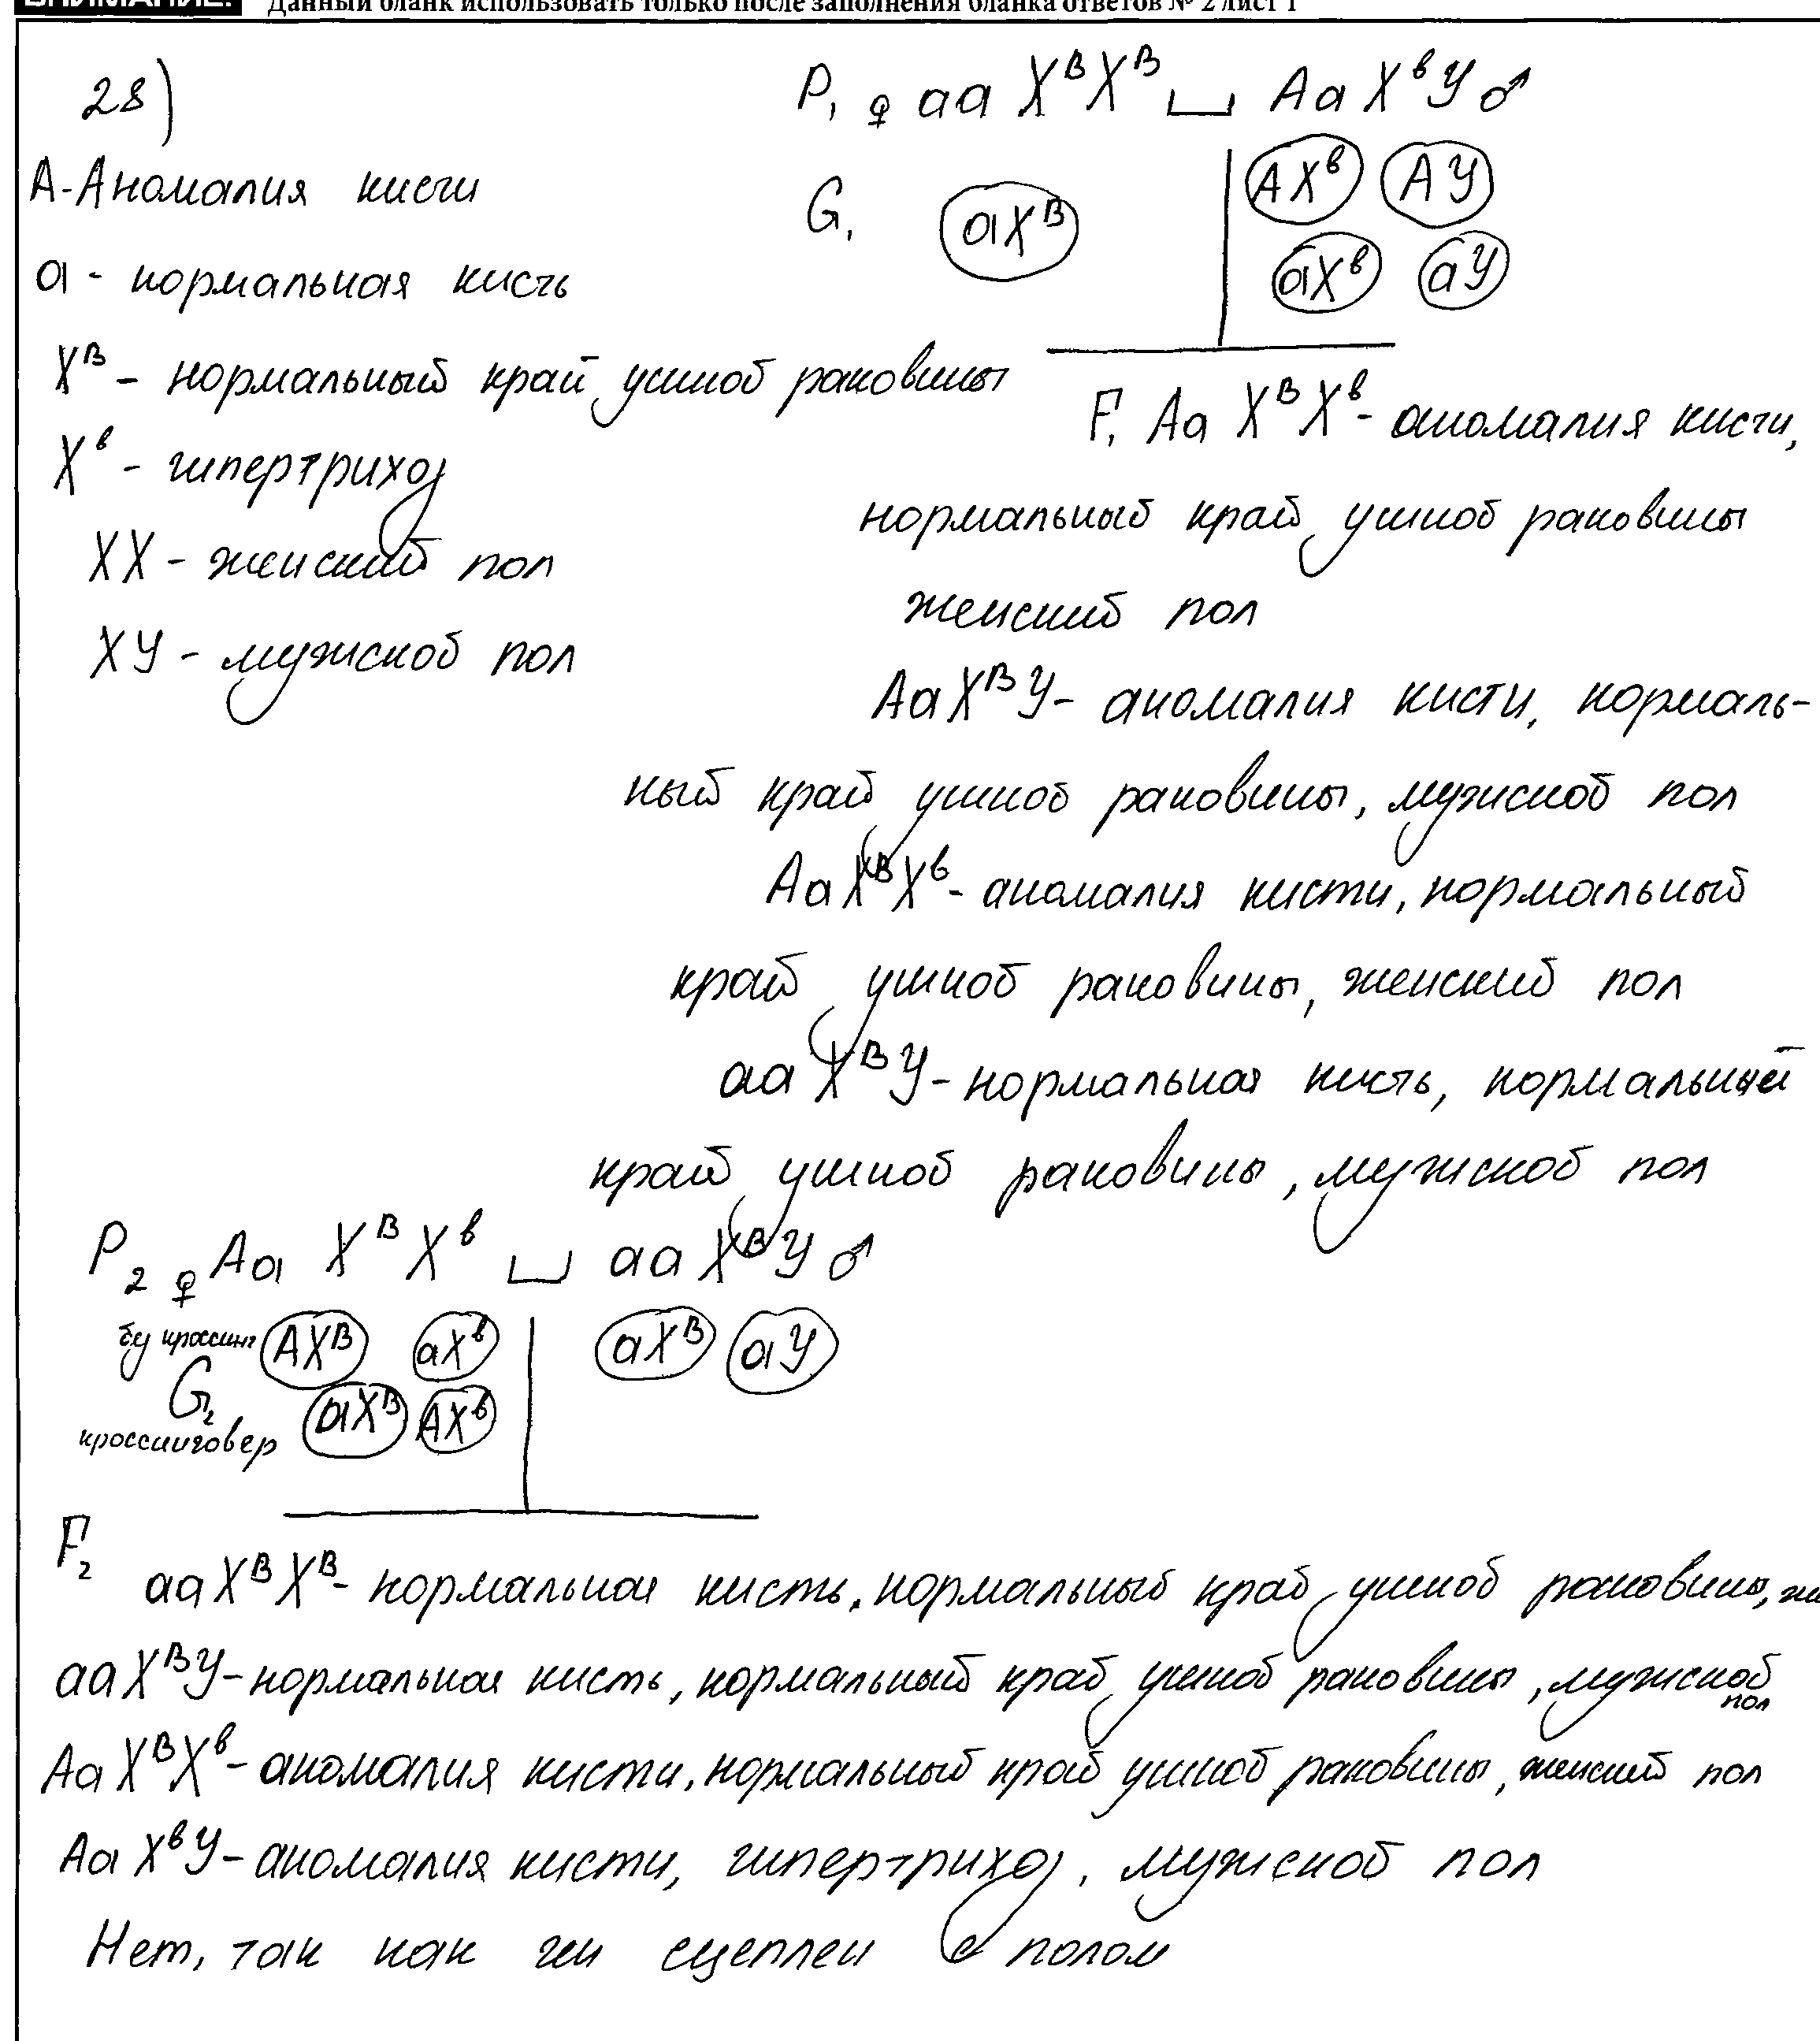 ВНИМАНИЕ! Данный бланк использовать только после заполнения бланка ответов № 2 лист 1
28)
А - Аномалия кисти
а - нормальная кисть
Xᴮ - нормальный край ушной раковины
Xᵇ - гипертрихоз
XX - женский пол
XY - мужской пол
P₁ ♀ aa XᴮXᴮ × Aa XᵇY ♂
G₁ aXᴮ AXᵇ AY
aXᵇ aY
F₁ Aa XᴮXᵇ - аномалия кисти,
нормальный край ушной раковины
женский пол
Aa XᴮY - аномалия кисти, нормаль-
ный край ушной раковины, мужской пол
Aa XᴮXᵇ - аномалия кисти, нормальный
край ушной раковины, женский пол
aa XᴮY - нормальная кисть, нормальный
край ушной раковины, мужской пол
P₂ ♀ Aa XᴮXᵇ × aa XᴮY ♂
без кроссинг AXᴮ aXᵇ aXᴮ aY
G₂ aXᴮ AXᵇ
кроссинговер
F₂
aa XᴮXᴮ - нормальная кисть, нормальный край ушной раковины, же
aa XᴮY - нормальная кисть, нормальный край ушной раковины, мужской
пол
Aa XᴮXᵇ - аномалия кисти, нормальный край ушной раковины, женский пол
Aa XᵇY - аномалия кисти, гипертрихоз, мужской пол
Нет, так как ген сцеплен с полом